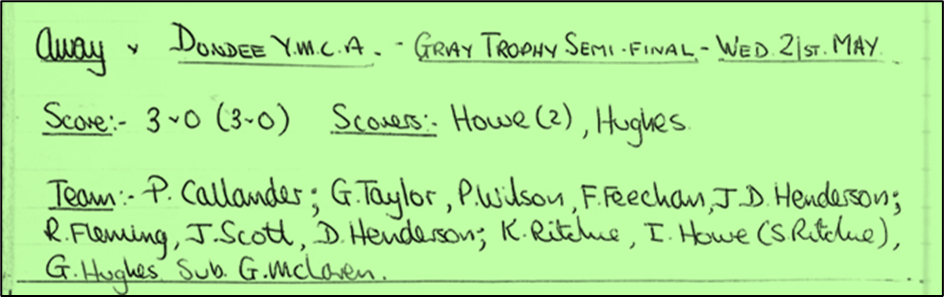 Away v Dundee Y.M.C.A. - Gray Trophy Semi-Final - Wed. 21st. May.
Score:- 3-0 (3-0) Scorers:- Howe (2), Hughes.
Team:- P. Callander; G. Taylor, P. Wilson, F. Feechan, J.D. Henderson;
R. Fleming, J. Scott, D. Henderson; K. Ritchie, I. Howe (S. Ritchie),
G. Hughes. Sub. G. McLaren.